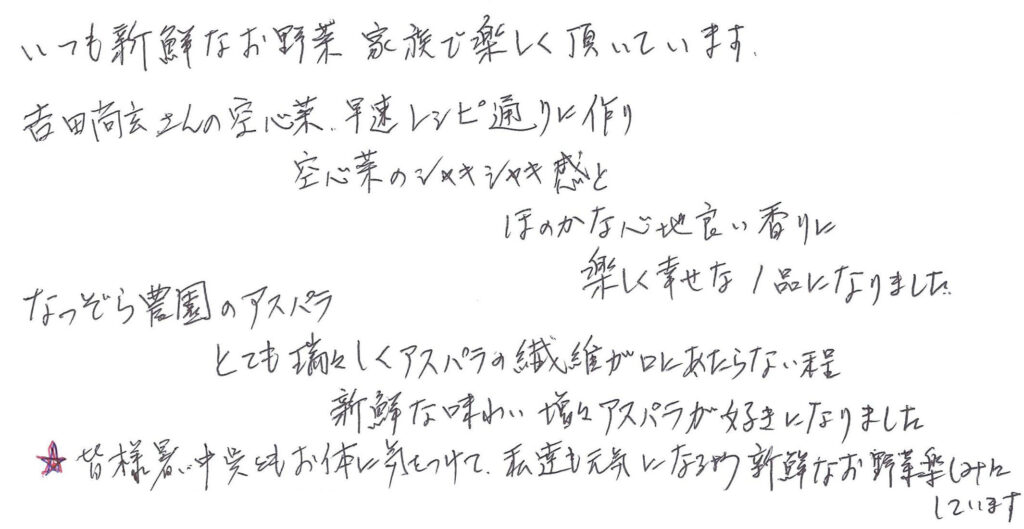 いつも新鮮なお野菜 家族で楽しく頂いています.
吉田尚玄さんの空心菜、早速レシピ通りに作り
空心菜のシャキシャキ感と
ほのかな心地良い香りに
楽しく幸せな1品になりました.
なつぞら農園のアスパラ
とても瑞々しくアスパラの繊維が口にあたらない程
新鮮な味わい 増々アスパラが好きになりました
☆皆様暑い中 呉々もお体に気をつけて、私達も元気になる 新鮮なお野菜楽しみに
しています